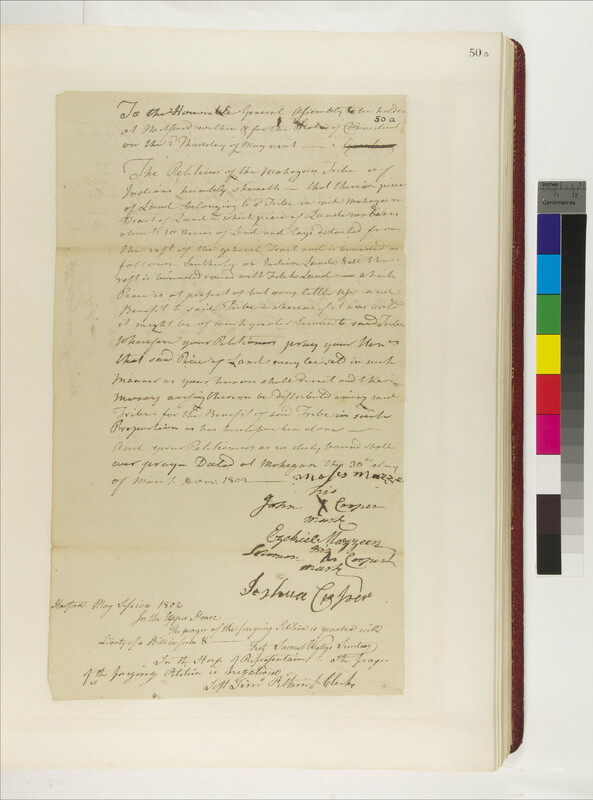 50a
To the Honorable General Assembly to be holden
50a
at Hartford within & for the State of Connecticut
on the 2d Thursday of May next
The Petitions of the Mohegan Tribe of
Indians humbly sheweth that there is a piece
of Land belonging to sd Tribe in said Mohegan
Tract of Land which piece of Land contains
about Acres of Land and lays detached from
the rest of the general Tract and is bounded as
follows Southerly on Indian Land & all the
rest is bounded round with Land which
Piece is at present of but very little Use and
Benefit to said Tribe whereas if it was sold
it might be of much greater Service to said Tribe
Wherefore your Petitioners pray your Honors
that said Piece of Land may be set in such
Manner as your honors shall direct and the
Money arising thereon be distributed among said
Tribe for the Benefit of said Tribe in such
Proportion as has heretofore been done
And your Petitioners as in duty bound shall
ever pray Dated at Mohegan this 30th day
of March 1802
his
John X Cooper
mark
Ezekiel Mazzeen
Solomon his X Cooper
mark
Joshua Cooper
Hartford May Session 1802
In the Upper House
The prayer of the foregoing Petition is granted with
Liberty of a Bill in form &c
Test Samuel Wyllys Secretary
In the House of Representatives the prayer
of the foregoing Petition is negatived
Test Timo Pitkin Jr Clerk
Inches
Centimetres